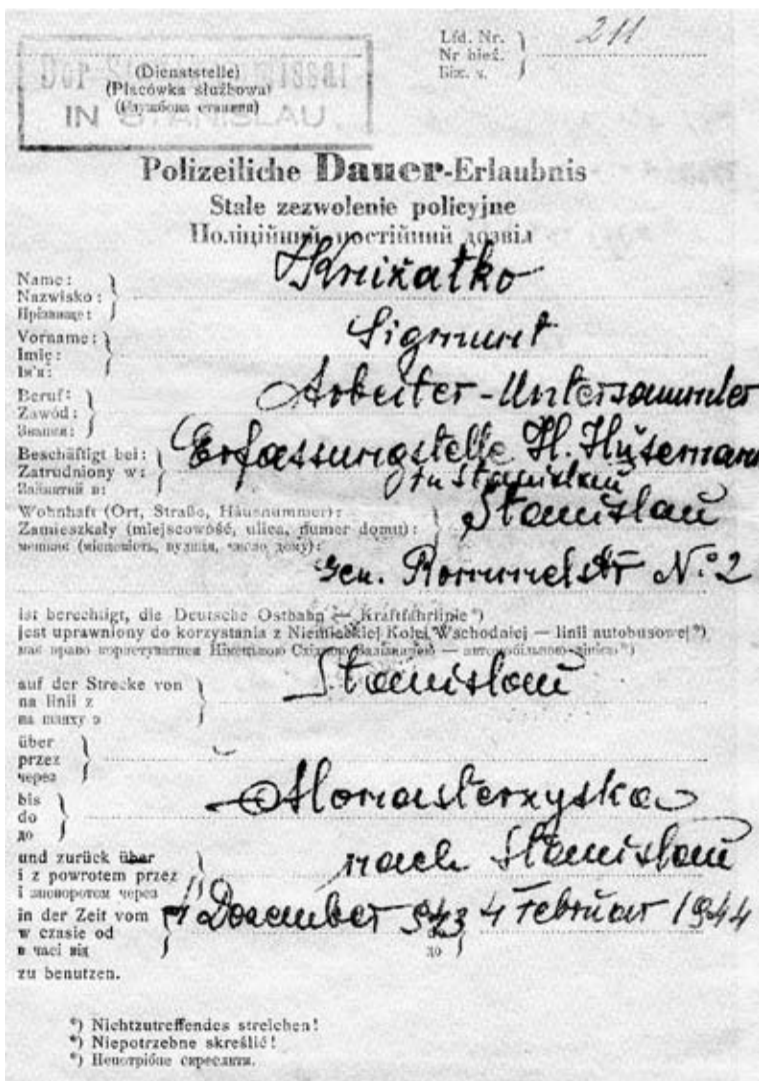 Lfd. Nr.
Nr bież.
Біж. ч.
211
(Dienststelle)
(Placówka służbowa)
(Службова станиця)
IN STANISLAU
Polizeiliche Dauer-Erlaubnis
Stałe zezwolenie policyjne
Поліційний постійний дозвіл
Name:
Nazwisko:
Прізвище:
Kniżatko
Vorname:
Imię:
Ім'я:
Sigmunt
Beruf:
Zawód:
Звання:
Arbeiter-Untersammler
Beschäftigt bei:
Zatrudniony w:
Зайнятий в:
Erfassungstelle H. Hüsemann
in Stanislau
Wohnhaft (Ort, Straße, Häusnummer):
Zamieszkały (miejscowość, ulica, numer domu):
мешкає (місцевість, вулиця, число дому):
Stanislau
Gen. Rommelstr No 2
ist berechtigt, die Deutsche Ostbahn — Kraftfahrlinie*)
jest uprawniony do korzystania z Niemieckiej Kolei Wschodniej — linii autobusowej*)
має право користуватися Німецькою Східною Залізницею — автомобільною лінією*)
auf der Strecke von
na linii z
на шляху з
Stanislau
über
przez
через
bis
do
до
Monasterzyska
und zurück über
i z powrotem przez
і зповоротом через
nach Stanislau
in der Zeit vom
w czasie od
в часі від
4 Dezember 943 4 Februar 1944
до
zu benutzen.
*) Nichtzutreffendes streichen!
*) Niepotrzebne skreślić!
*) Непотрібне скреслити.